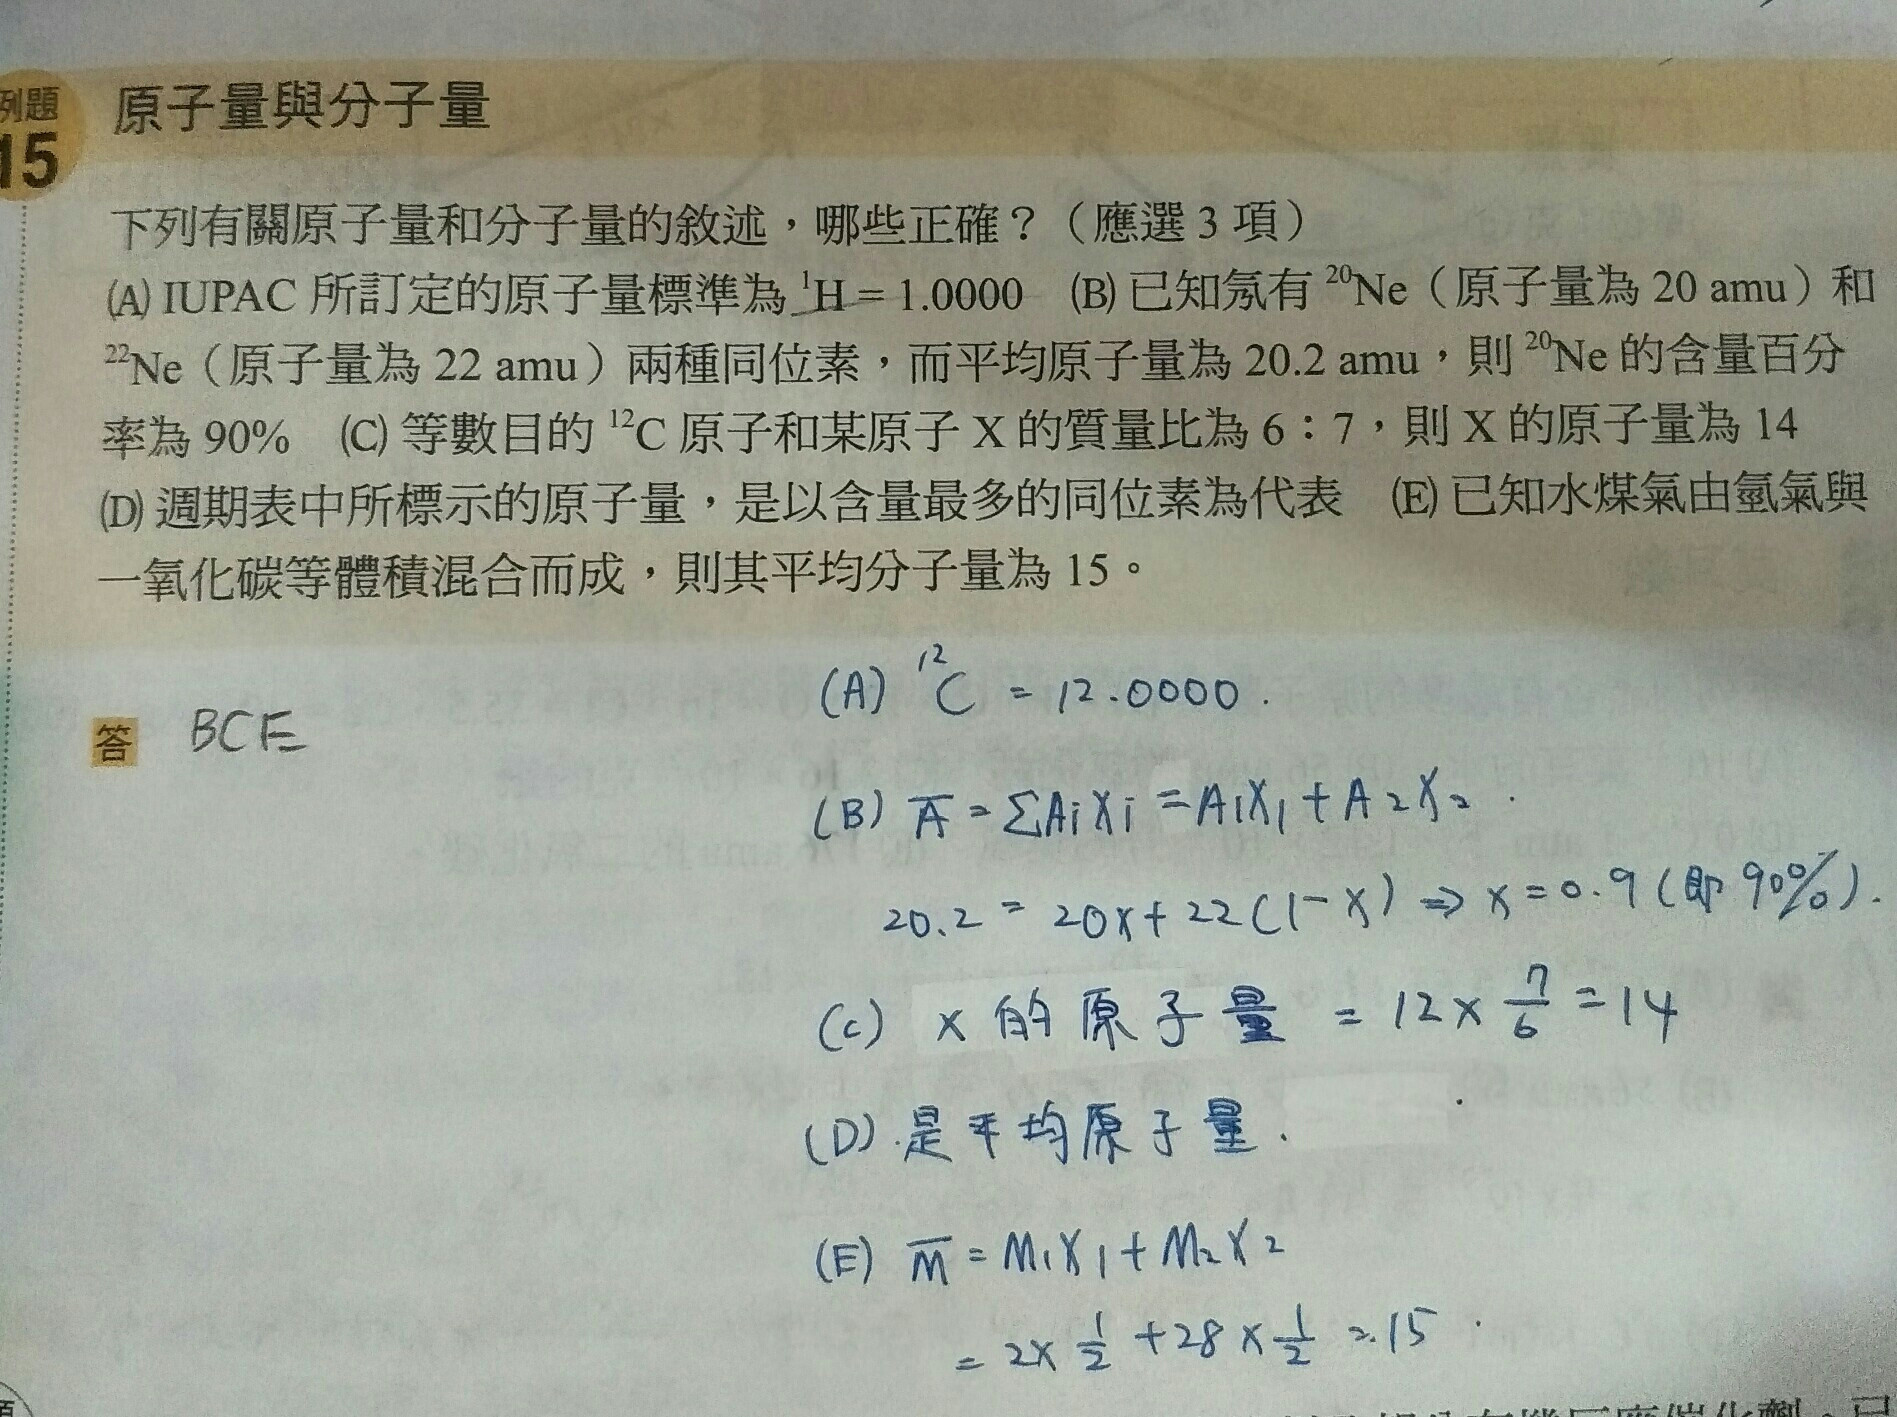 例題 原子量與分子量
15
下列有關原子量和分子量的敘述,哪些正確?(應選 3 項)
(A) IUPAC 所訂定的原子量標準為 ¹H = 1.0000 (B) 已知氖有 ²⁰Ne(原子量為 20 amu)和
²²Ne(原子量為 22 amu)兩種同位素,而平均原子量為 20.2 amu,則 ²⁰Ne 的含量百分
率為 90% (C) 等數目的 ¹²C 原子和某原子 X 的質量比為 6:7,則 X 的原子量為 14
(D) 週期表中所標示的原子量,是以含量最多的同位素為代表 (E) 已知水煤氣由氫氣與
一氧化碳等體積混合而成,則其平均分子量為 15。
(A) ¹²C = 12.0000.
答 BCE
(B) A̅ = ΣAiXi = A₁X₁ + A₂X₂.
20.2 = 20x + 22(1-x) ⇒ x = 0.9 (即 90%).
(C) X 的原子量 = 12 × 7/6 = 14
(D) 是平均原子量.
(E) M̅ = M₁X₁ + M₂X₂
= 2 × 1/2 + 28 × 1/2 = 15